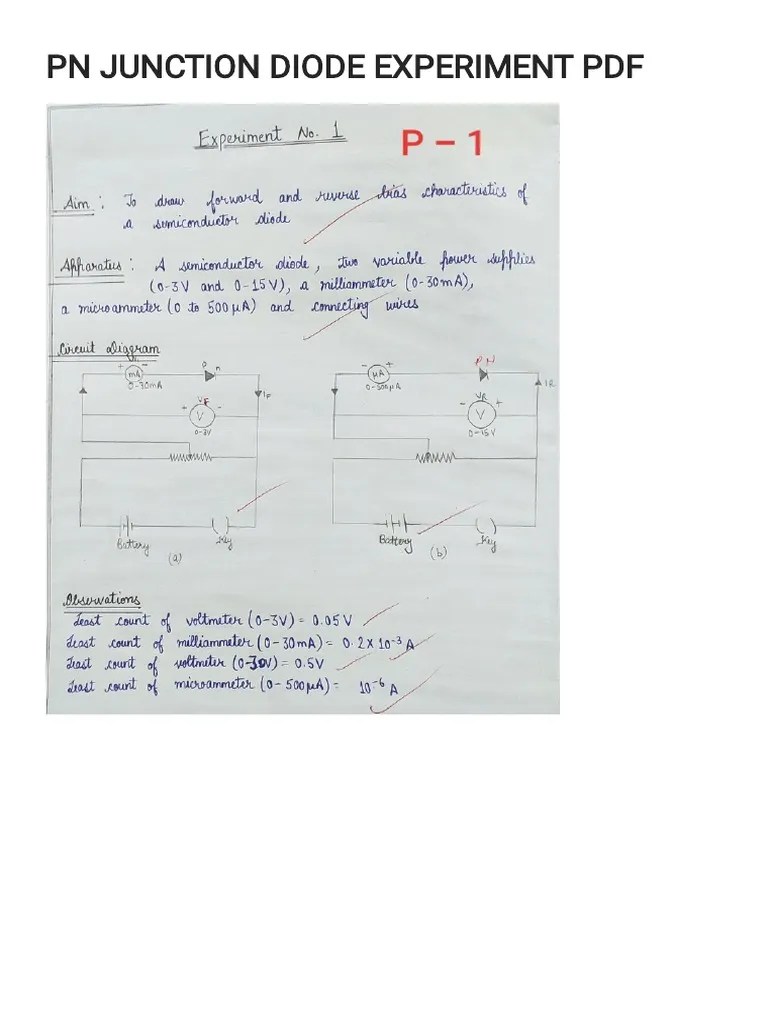 PN JUNCTION DIODE EXPERIMENT PDF
Experiment No. 1
P - 1
Aim : To draw forward and reverse bias characteristics of
a semiconductor diode
Apparatus : A semiconductor diode, two variable power supplies
(0-3V and 0-15V), a milliammeter (0-30mA),
a microammeter (0 to 500μA) and connecting wires
Circuit Diagram
+ mA -
0-30mA
P n
IF
VF
+ V -
0-3V
Battery
Key
(a)
- μA +
0-500μA
P N
IR
VR
- V +
0-15V
Battery
Key
(b)
Observations
Least count of voltmeter (0-3V) = 0.05 V
Least count of milliammeter (0-30mA) = 0.2 x 10-3 A
Least count of voltmeter (0-30V) = 0.5V
Least count of microammeter (0-500μA) = 10-6 A